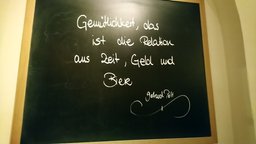 Gemütlichkeit, das
ist die Relation
aus Zeit, Geld und
Bier